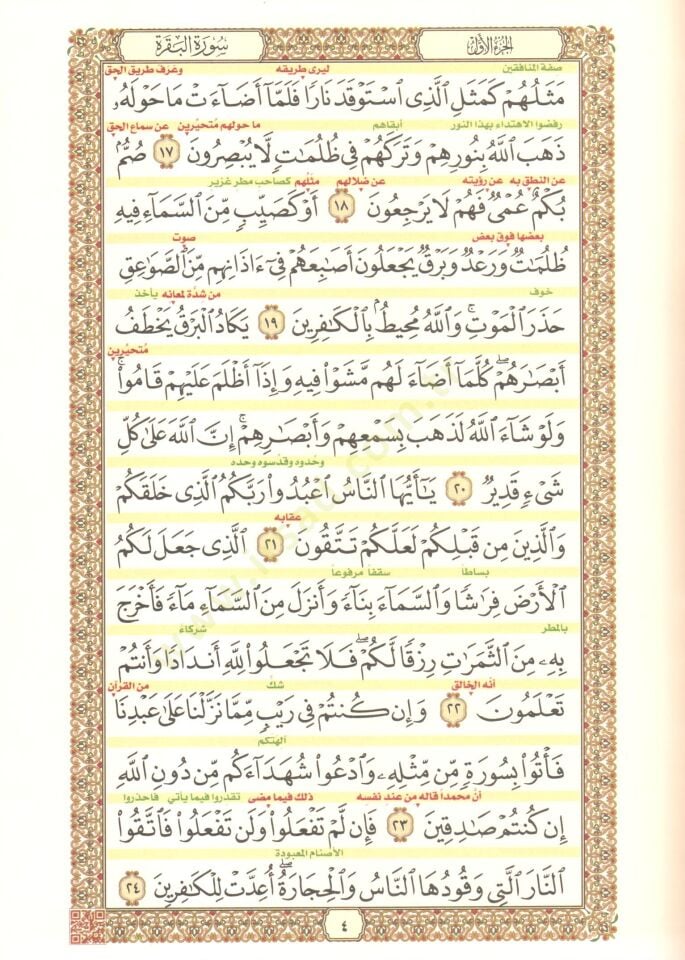 الجزء الأول
سورة البقرة
صفة المنافقين ليرى طريقه وعرف طريق الحق
مَثَلُهُمْ كَمَثَلِ الَّذِي اسْتَوْقَدَ نَارًا فَلَمَّا أَضَاءَتْ مَا حَوْلَهُ
رفضوا الاهتداء بهذا النور أبقاهم ما حولهم متحيرين عن سماع الحق
ذَهَبَ اللَّهُ بِنُورِهِمْ وَتَرَكَهُمْ فِي ظُلُمَاتٍ لَّا يُبْصِرُونَ ١٧ صُمٌّ
عن النطق به عن رؤيته عن ضلالهم مثلهم كصاحب مطر غزير
بُكْمٌ عُمْيٌ فَهُمْ لَا يَرْجِعُونَ ١٨ أَوْ كَصَيِّبٍ مِّنَ السَّمَاءِ فِيهِ
بعضها فوق بعض صوت
ظُلُمَاتٌ وَرَعْدٌ وَبَرْقٌ يَجْعَلُونَ أَصَابِعَهُمْ فِي ءَاذَانِهِم مِّنَ الصَّوَاعِقِ
خوف من شدة لمعانه يأخذ
حَذَرَ الْمَوْتِ وَاللَّهُ مُحِيطٌ بِالْكَافِرِينَ ١٩ يَكَادُ الْبَرْقُ يَخْطَفُ
متحيرين
أَبْصَارَهُمْ كُلَّمَا أَضَاءَ لَهُم مَّشَوْا فِيهِ وَإِذَا أَظْلَمَ عَلَيْهِمْ قَامُوا
وَلَوْ شَاءَ اللَّهُ لَذَهَبَ بِسَمْعِهِمْ وَأَبْصَارِهِمْ إِنَّ اللَّهَ عَلَىٰ كُلِّ
وحدوه وقدسوه وحده
شَيْءٍ قَدِيرٌ ٢٠ يَا أَيُّهَا النَّاسُ اعْبُدُوا رَبَّكُمُ الَّذِي خَلَقَكُمْ
عقابه
وَالَّذِينَ مِن قَبْلِكُمْ لَعَلَّكُمْ تَتَّقُونَ ٢١ الَّذِي جَعَلَ لَكُمُ
بساطا سقفا مرفوعا
الْأَرْضَ فِرَاشًا وَالسَّمَاءَ بِنَاءً وَأَنزَلَ مِنَ السَّمَاءِ مَاءً فَأَخْرَجَ
بالمطر شركاء
بِهِ مِنَ الثَّمَرَاتِ رِزْقًا لَّكُمْ فَلَا تَجْعَلُوا لِلَّهِ أَندَادًا وَأَنتُمْ
أنه الخالق شك من القرآن
تَعْلَمُونَ ٢٢ وَإِن كُنتُمْ فِي رَيْبٍ مِّمَّا نَزَّلْنَا عَلَىٰ عَبْدِنَا
آلهتكم
فَأْتُوا بِسُورَةٍ مِّن مِّثْلِهِ وَادْعُوا شُهَدَاءَكُم مِّن دُونِ اللَّهِ
أن محمدا قاله من عند نفسه ذلك فيما مضى تقدروا فيما يأتي فاحذروا
إِن كُنتُمْ صَادِقِينَ ٢٣ فَإِن لَّمْ تَفْعَلُوا وَلَن تَفْعَلُوا فَاتَّقُوا
الأصنام المعبودة
النَّارَ الَّتِي وَقُودُهَا النَّاسُ وَالْحِجَارَةُ أُعِدَّتْ لِلْكَافِرِينَ ٢٤
٤